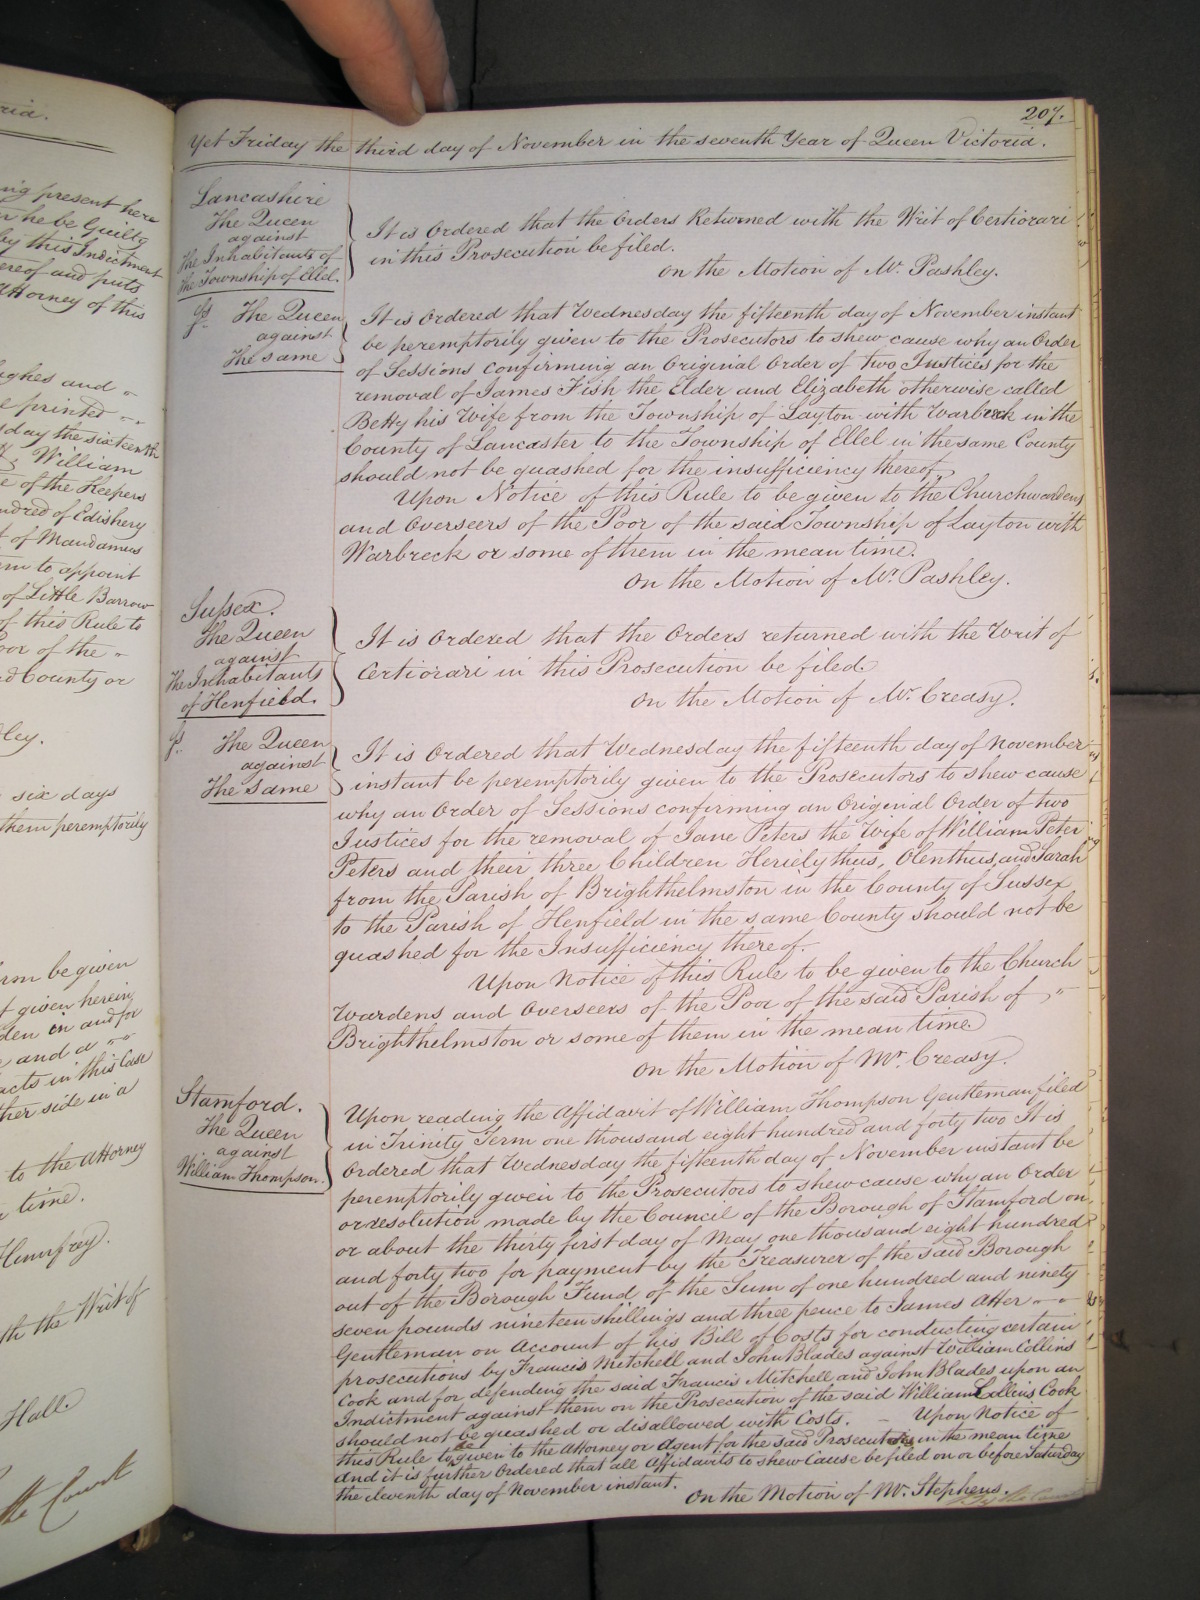 ria.
ing present here
n he be Guilty
by this Indictment
ereof and puts
Attorney of this
ughes and
e printed
day the sixteenth
William
e of the Keepers
undred of Edishery
t of Mandamus
em to appoint
of Little Barrow
of this Rule to
oor of the
d County or
ley.
six days
them peremptorily
rm be given
t given herein
den in and for
e and a
acts in this Case
ther side in a
to the Attorney
time.
Humfrey.
th the Writ of
Hall.
the Court
207.
Yet Friday the third day of November in the seventh Year of Queen Victoria.
Lancashire
The Queen
against
The Inhabitants of
the Township of Ellel.
It is Ordered that the Orders Returned with the Writ of Certiorari
in this Prosecution be filed.
On the Motion of Mr. Pashley.
The Queen
against
The same
It is Ordered that Wednesday the fifteenth day of November instant
be peremptorily given to the Prosecutors to shew cause why an Order
of Sessions confirming an Original Order of two Justices for the
removal of James Fish the Elder and Elizabeth otherwise called
Betty his Wife from the Township of Layton with Warbreck in the
County of Lancaster to the Township of Ellel in the same County
should not be quashed for the insufficiency thereof.
Upon Notice of this Rule to be given to the Churchwardens
and Overseers of the Poor of the said Township of Layton with
Warbreck or some of them in the mean time.
On the Motion of Mr. Pashley.
Sussex.
The Queen
against
The Inhabitants
of Henfield.
It is Ordered that the Orders returned with the Writ of
Certiorari in this Prosecution be filed.
On the Motion of Mr. Creasy.
The Queen
against
The same
It is Ordered that Wednesday the fifteenth day of November
instant be peremptorily given to the Prosecutors to shew cause
why an Order of Sessions confirming an Original Order of two
Justices for the removal of Jane Peters the Wife of William Peter
Peters and their three Children Herielythus, Olenthus, and Sarah
from the Parish of Brighthelmston in the County of Sussex
to the Parish of Henfield in the same County should not be
quashed for the Insufficiency thereof.
Upon Notice of this Rule to be given to the Church
Wardens and Overseers of the Poor of the said Parish of
Brighthelmston or some of them in the mean time.
On the Motion of Mr. Creasy.
Stamford.
The Queen
against
William Thompson.
Upon reading the Affidavit of William Thompson Gentleman filed
in Trinity Term one thousand eight hundred and forty two It is
Ordered that Wednesday the fifteenth day of November instant be
peremptorily given to the Prosecutors to shew cause why an Order
or resolution made by the Council of the Borough of Stamford on
or about the thirty first day of May one thousand eight hundred
and forty two for payment by the Treasurer of the said Borough
out of the Borough Fund of the Sum of one hundred and ninety
seven pounds nineteen shillings and three pence to James Atter
Gentleman on Account of his Bill of Costs for conducting certain
prosecutions by Francis Mitchell and John Blades against William Collins
Cook and for defending the said Francis Mitchell and John Blades upon an
Indictment against them on the Prosecution of the said William Collins Cook
should not be quashed or disallowed with Costs. – Upon Notice of
this Rule to be given to the Attorney or Agent for the said Prosecutors in the mean time
And it is further Ordered that all Affidavits to shew Cause be filed on or before Saturday
the eleventh day of November instant.
On the Motion of Mr. Stephens.